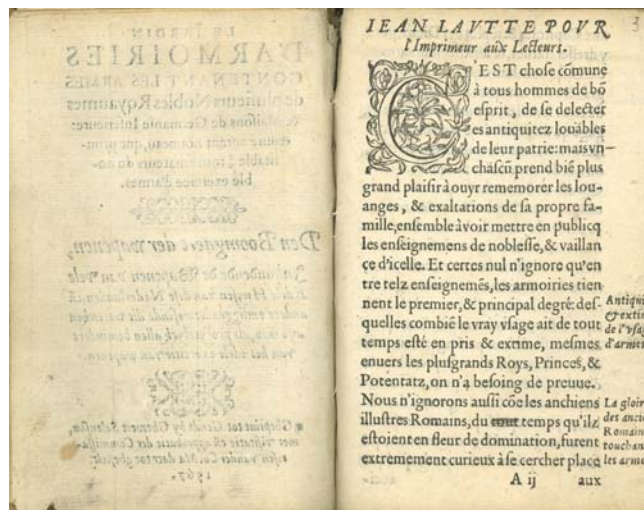 LE JARDIN
D'ARMOIRIES
CONTENANT LES ARMES
de plusieurs Nobles Royaumes
& maisons de Germanie Inferieure:
ble exercice d'armes.
Den Boomgaert der wapenen,
1567.
3
IEAN LAVTTE POVR
l'Imprimeur aux Lecteurs.
C'EST chose cõmune
à tous hommes de bõ
esprit, de se delecter
es antiquitez louables
de leur patrie: mais vn–
chascũ prend bié plus
grand plaisir à ouyr rememorer les lou-
anges, & exaltations de sa propre fa-
mille, ensemble à voir mettre en publicq
les enseignemens de noblesse, & vaillan
çe d'icelle. Et certes nul n'ignore qu'en
tre telz enseignemés, les armoiries tien
nent le premier, & principal degré: des-
quelles combié le vray vsage ait de tout
temps esté en pris & extime, mesmes
enuers les plusgrands Roys, Princes, &
Potentatz, on n'a besoing de preuue.
Nous n'ignorons aussi cõe les anchiens
illustres Romains, du tout temps qu'ilz
estoient en fleur de domination, furent
extremement curieux à se cercher place
Antiqui
& exti
de l'vsa
d'armes
La gloir
des ancie
Romain
touchan
les arme
A ij aux